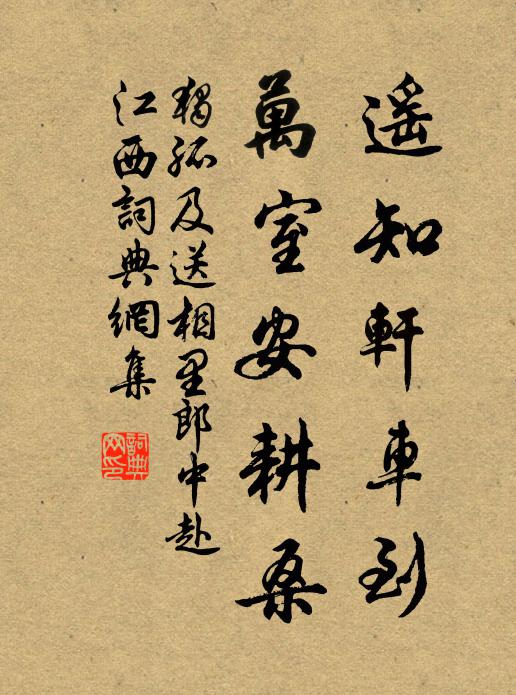 遥知軒車到
萬室安耕桑
獨孤及送相里郎中赴
江西詞典網集
詞典
网印